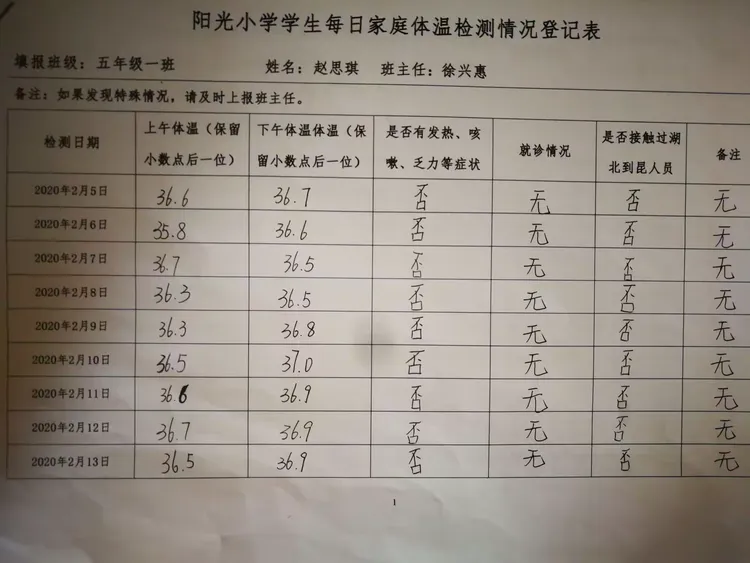 阳光小学学生每日家庭体温检测情况登记表
填报班级：五年级一班 姓名：赵思琪 班主任：徐兴惠
备注：如果发现特殊情况，请及时上报班主任。
检测日期 上午体温（保留小数点后一位） 下午体温体温（保留小数点后一位） 是否有发热、咳嗽、乏力等症状 就诊情况 是否接触过湖北到昆人员 备注
2020年2月5日 36.6 36.7 否 无 否 无
2020年2月6日 35.8 36.6 否 无 否 无
2020年2月7日 36.7 36.5 否 无 否 无
2020年2月8日 36.3 36.5 否 无 否 无
2020年2月9日 36.3 36.8 否 无 否 无
2020年2月10日 36.5 37.0 否 无 否 无
2020年2月11日 36.6 36.9 否 无 否 无
2020年2月12日 36.7 36.9 否 无 否 无
2020年2月13日 36.5 36.9 否 无 否 无
1